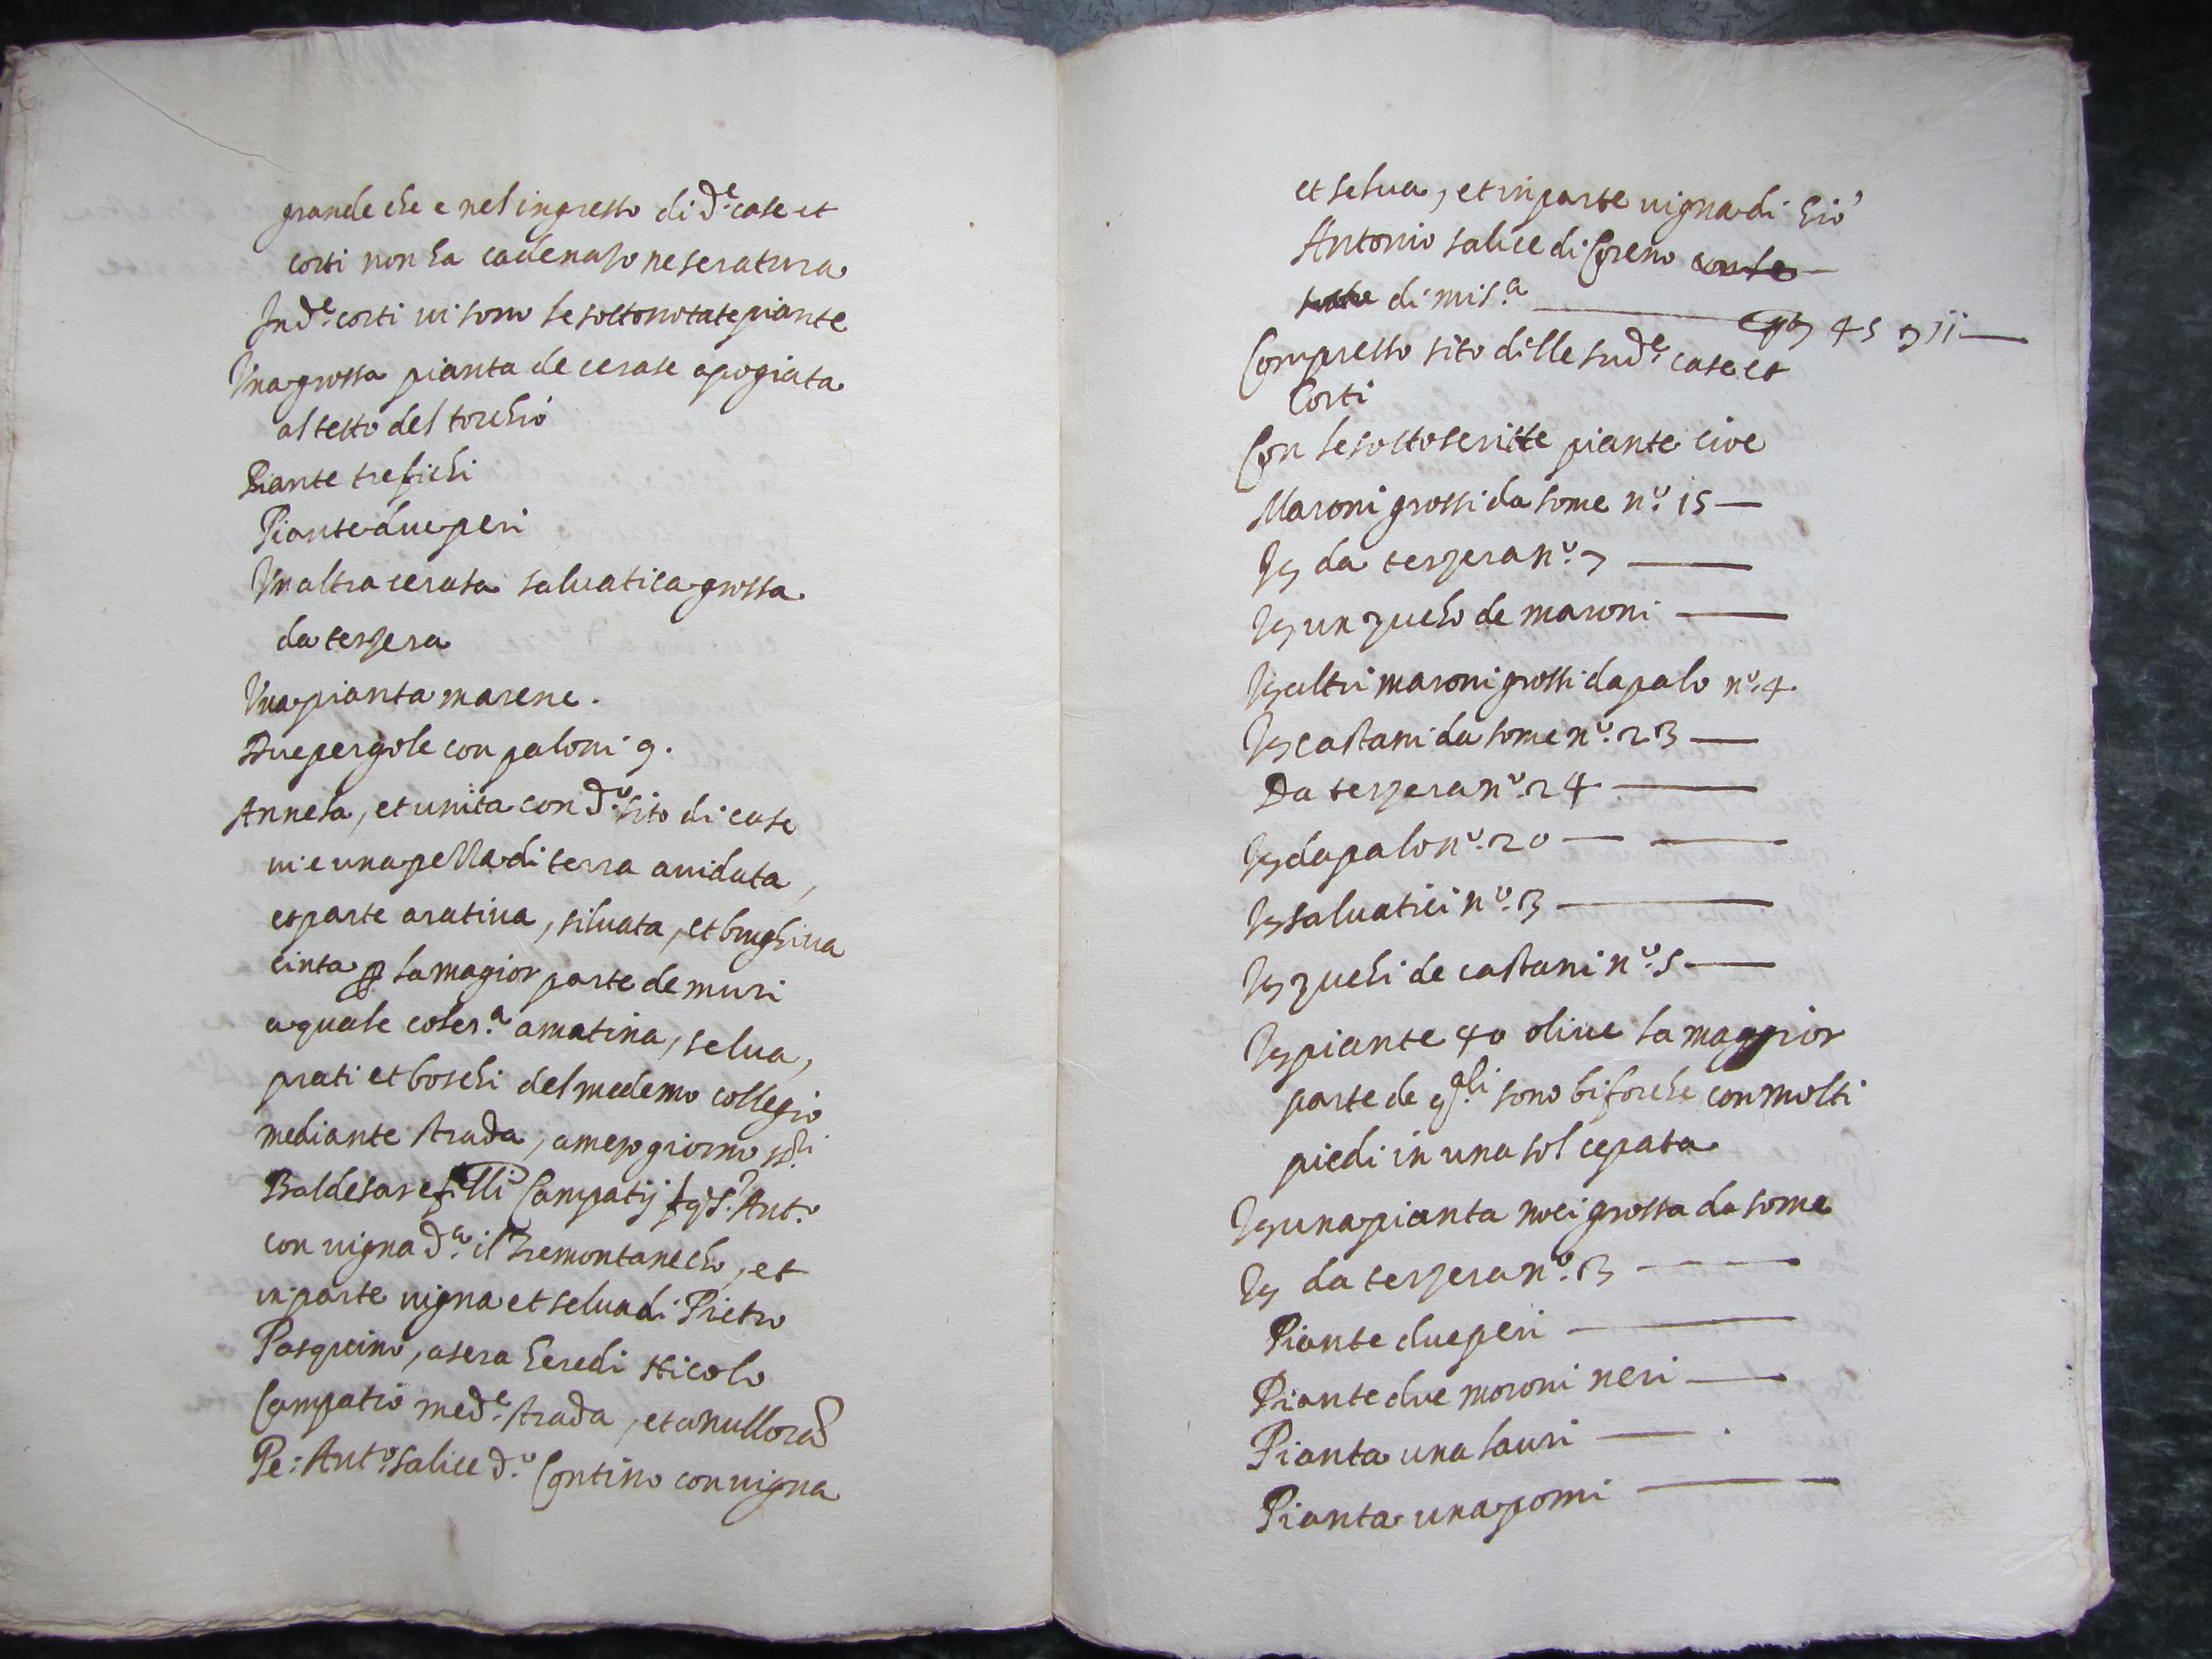 grande che e nel ingresso di d.e case et
corti non ha cadenazo ne seratura
In d.e corti vi sono le sottonotate piante
Una grossa pianta de cerase apogiata
al tetto del torchio
Piante tre fichi
Piante due peri
Un altra cerasa salvatica grossa
da terzera
Una pianta marene.
Due pergole con paloni 9.
Annesa, et unita con d.o sito di case
vi e una pezza di terra avidata,
et parte aratiua, siluata, et brughiua
cinta p la magior parte de muri
a quale coher.a a matina, selua,
prati et boschi del medemo collegio
mediante strada, a mezo giorno
Baldesar e f.lli Campatij Ant.o
con vigna d.a il Tremontanecho, et
in parte vigna et selua di Pietro
Pasquino, a sera heredi Nicolo
Campatio med.e strada, et a nullora
Pe: Ant.o Salice d.o Contino con vigna
et selua, et in parte vigna di Gio
Antonio Salice di Coreno
di mis.a ——— 45 ii —
Compresso sito dille sud.e case et
Corti
Con le sottoscritte piante cioe
Maroni grossi da some n.o 15 —
It da terzera n.o 7 ——
It un zucho de maroni ——
It altri maroni grossi da palo n.o 4.
It castani da some n.o 23 —
Da terzera n.o 24 ——
It da palo n.o 20 — ——
It saluatici n.o 3 ———
It zuchi de castani n.o 5 —
It piante 40 oliue la maggior
parte de q.li sono biforche con molti
piedi in una sol cepata
It una pianta noci grossa da some
It da terzera n.o 3 — — —
Piante due peri ———
Piante due moroni neri ——
Pianta una lauri —— .
Pianta una pomi ———